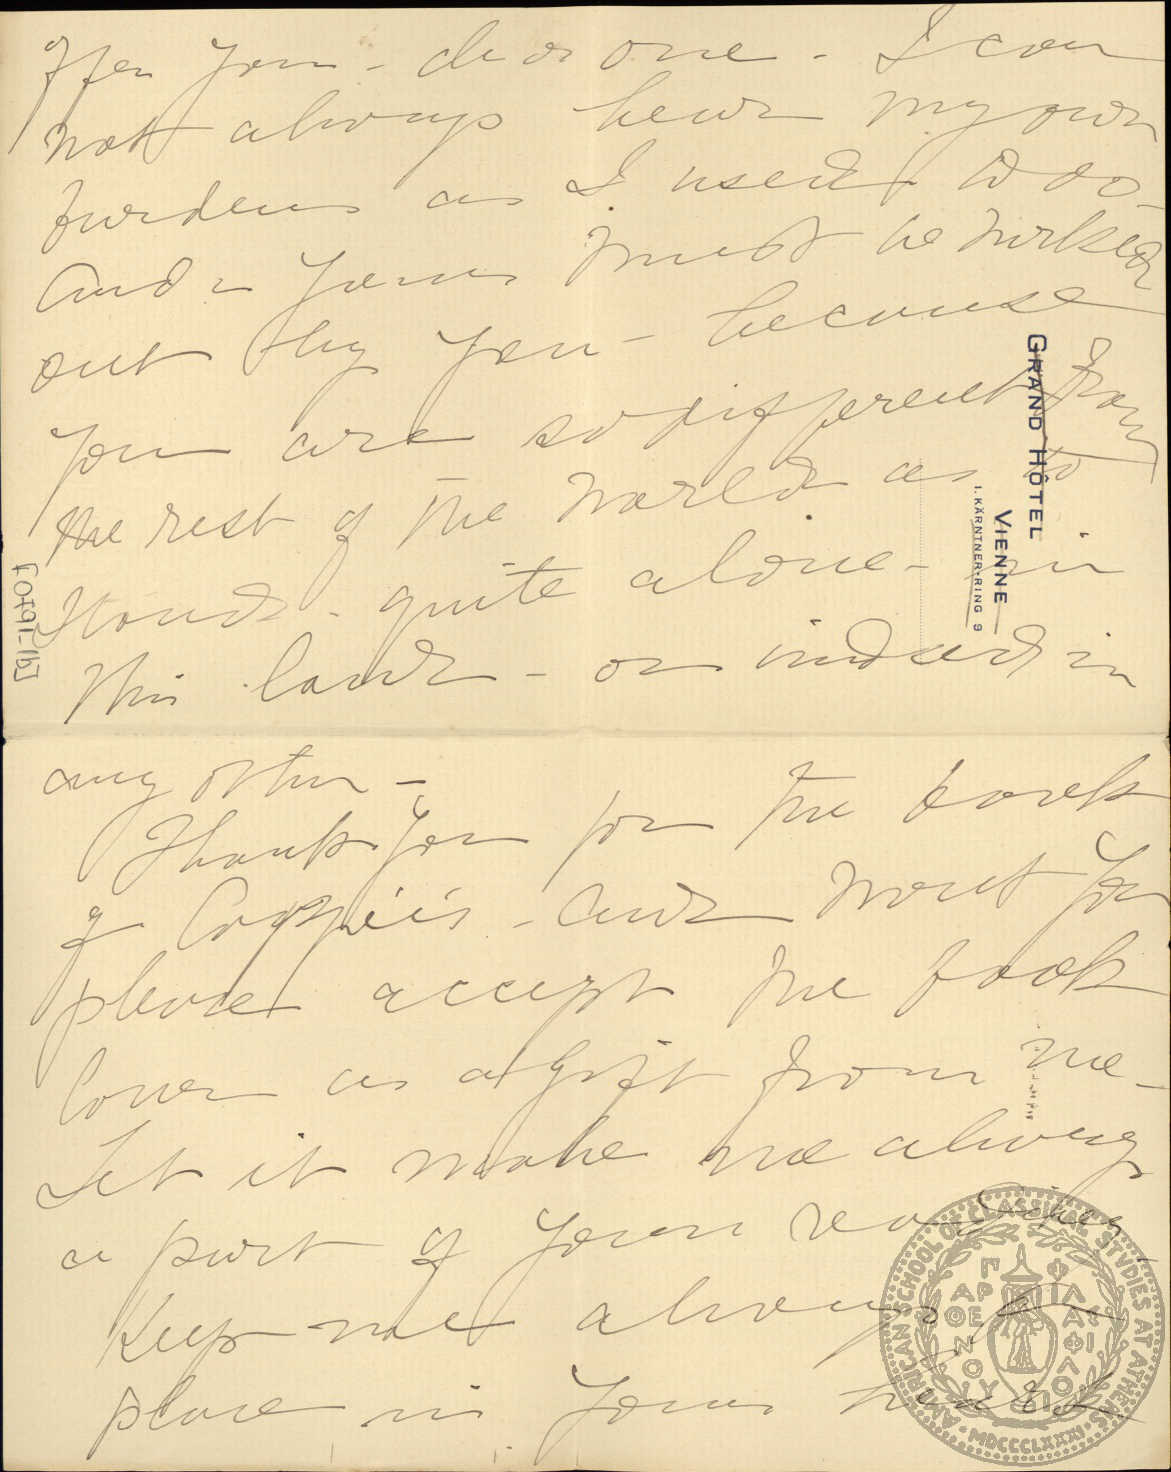 offer you - dear one - I can
not always hear my own
burdens as I used to do -
And - yours must be worked
out by you - because
you are so different from
the rest of the world as to
stand - quite alone - in
this land - or indeed in
any other -
Thank you for the book
of - And wont you
please accept the book
cover as a gift from me -
Let it make me always
a part of your reading -
Keep me always a
place in your heart
GRAND HÔTEL
VIENNE
I. KÄRNTNERRING 9
AMERICAN SCHOOL OF CLASSICAL STVDIES AT ATHENS
· MDCCCLXXXI ·
ΠΑΡΘΕΝΟΥ ΦΙΛΑΣ ΦΙΛΟΙ